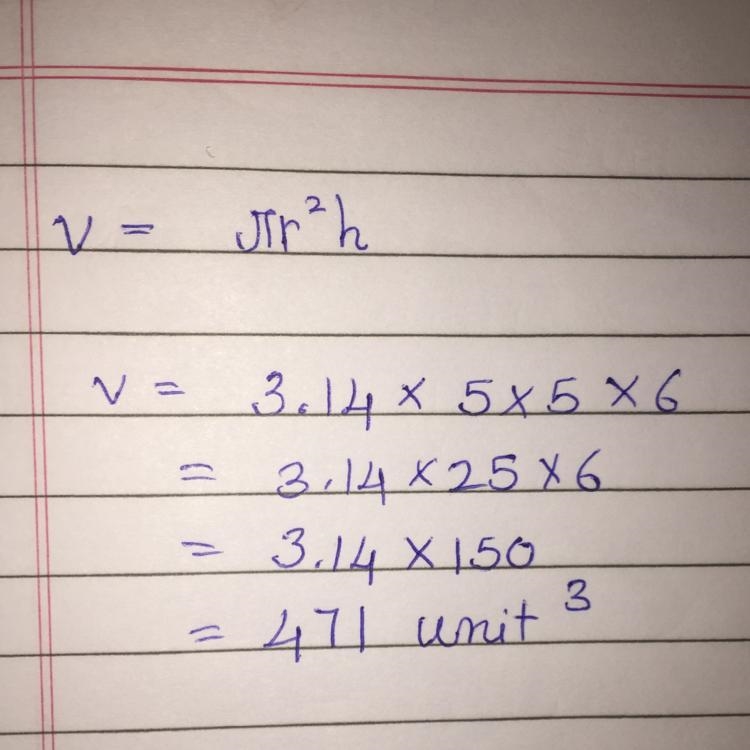 V = πr²h
V = 3.14 × 5 × 5 × 6
= 3.14 × 25 × 6
= 3.14 × 150
= 471 unit³